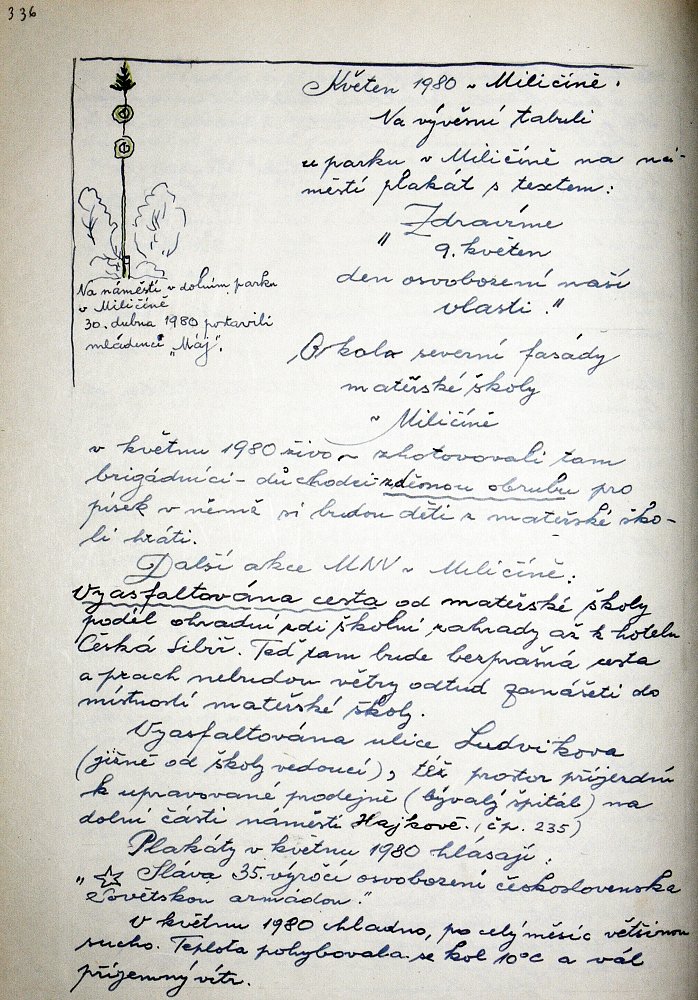 336
Květen 1980 v Miličíně.
Na vývěsní tabuli
u parku v Miličíně na ná-
městí plakát s textem:
Zdravíme
" 9. květen
den osvobození naší
vlasti."
Na náměstí v dolním parku
v Miličíně
30. dubna 1980 postavili
mládenci „Máj".
Okolo severní fasády
mateřské školy
v Miličíně
v květnu 1980 živo - zhotovovali tam
brigádníci - důchodci zděnou obrubu pro
písek v němž si budou děti z mateřské ško-
li hráti.
Další akce MNV v Miličíně:
Vyasfaltována cesta od mateřské školy
podél ohradní zdi školní zahrady až k hotelu
Česká Sibiř. Teď tam bude bezprašná cesta
a prach nebudou větry odtud zanášeti do
místností mateřské školy.
Vyasfaltována ulice Ludvíkova
(jižně od školy vedoucí), též prostor příjezdní
k upravované prodejně (bývalý špitál) na
dolní části náměstí Hajkově. (čp. 235)
Plakáty v květnu 1980 hlásají:
„ Sláva 35. výročí osvobození československa
Sovětskou armádou."
V květnu 1980 chladno, po celý měsíc většinou
sucho. Teplota pohybovala se kol 10°C a vál
příjemný vítr.